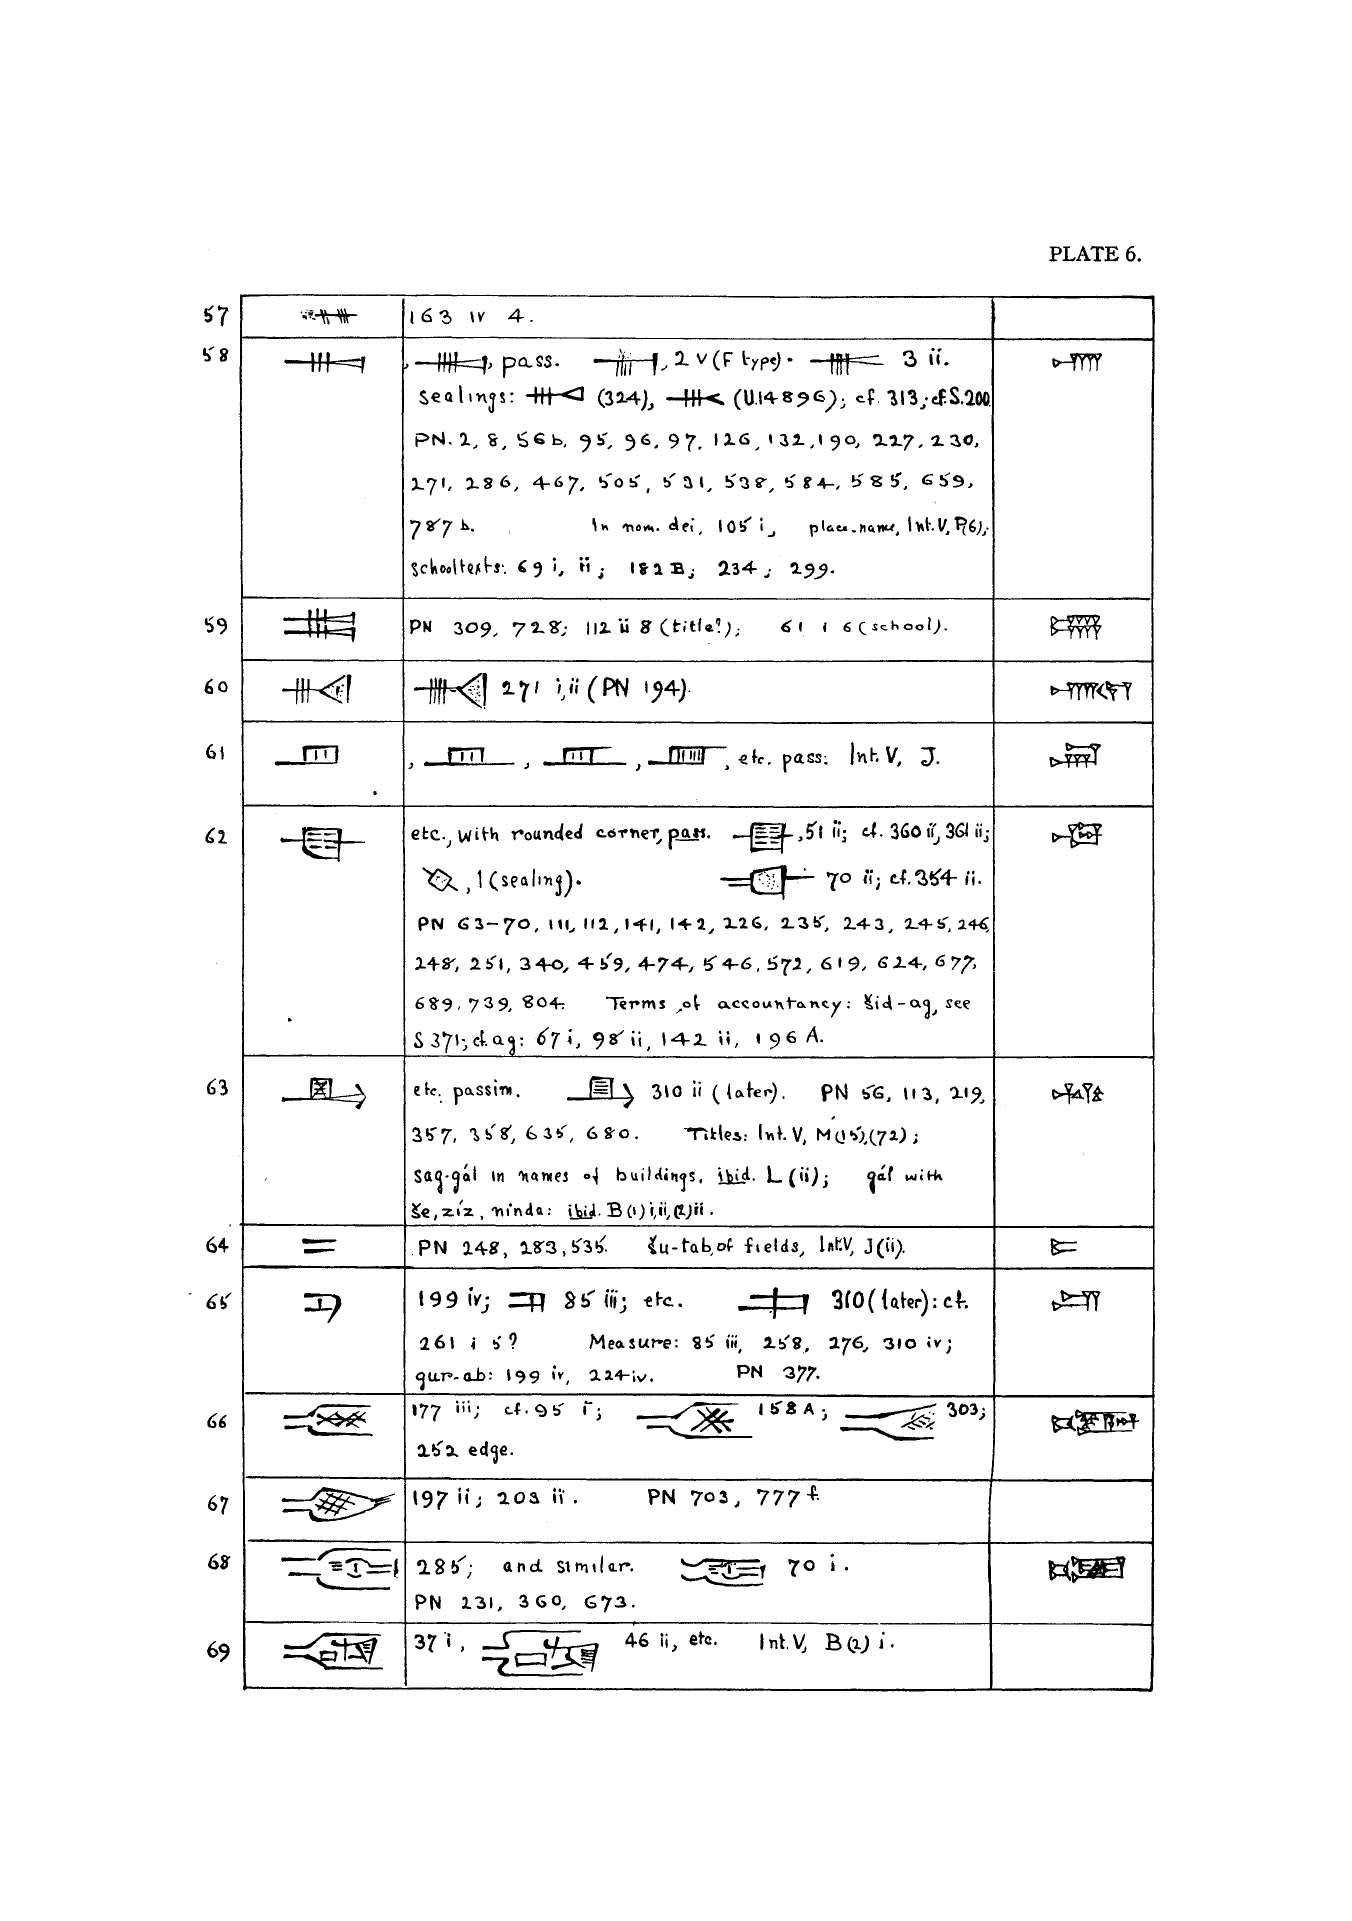 PLATE 6.
57 163 iv 4.
58 , , pass. , 2 v (F type). 3 ii.
Sealings: (324), (U.14896); cf. 313; cf. S. 200
PN. 2, 8, 56b, 95, 96, 97, 126, 132, 190, 227, 230,
271, 286, 467, 505, 531, 538, 584, 585, 659,
787 b. In nom. dei, 105 i, place-name, Int. V, P(6);
Schooltexts: 69 i, ii; 182 B; 234; 299.
59 PN 309, 728; 112 ii 8 (title?); 61 i 6 (school).
60 271 i, ii (PN 194).
61 , , , , etc. pass. Int. V, J.
62 etc., with rounded corner, pass. , 51 ii; cf. 360 ii, 361 ii;
, 1 (sealing). 70 ii; cf. 354 ii.
PN 63-70, 111, 112, 141, 142, 226, 235, 243, 245, 246,
248, 251, 340, 459, 474, 546, 572, 619, 624, 677,
689, 739, 804. Terms of accountancy: šid-ag, see
S 371; cf. ag: 67 i, 98 ii, 142 ii, 196 A.
63 etc. passim. 310 ii (later). PN 56, 113, 219,
357, 358, 635, 680. Titles: Int. V, M(15), (72);
sag-gál in names of buildings, ibid. L (ii); gál with
še, zíz, ninda: ibid. B (1) i, ii, (2) ii.
64 PN 248, 283, 535. šu-tab, of fields, Int. V, J(ii).
65 199 iv; 85 iii; etc. 310 (later): cf.
261 i 5? Measure: 85 iii, 258, 276, 310 iv;
gur-ab: 199 iv, 224 iv. PN 377.
66 177 iii; cf. 95 i; 158 A; 303;
252 edge.
67 197 ii; 203 ii. PN 703, 777 f.
68 285; and similar. 70 i.
PN 231, 360, 673.
69 37 i, 46 ii, etc. Int. V, B(2) i.